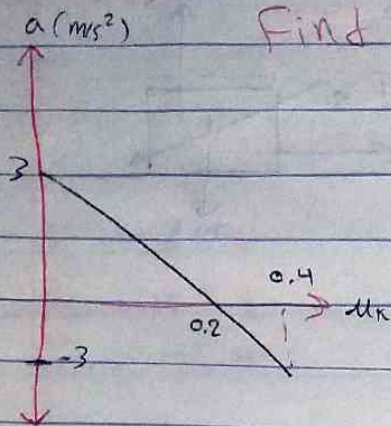 a (m/s²) Find
3
0.4
μk
0.2
-3